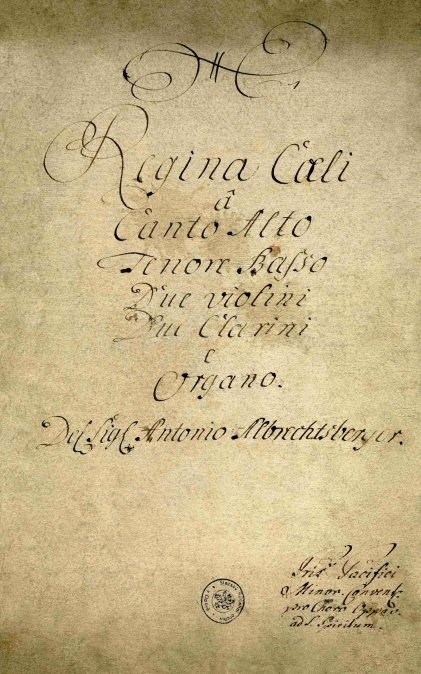 Regina Cæli
â
Canto Alto
Tenore Baſso
Due violini
Due Clarini
e
Organo.
Del Sigl Antonio Albrechtsberger.
Pacifici
Minor. Convent:
pro Choro
ad S. Spiritum.